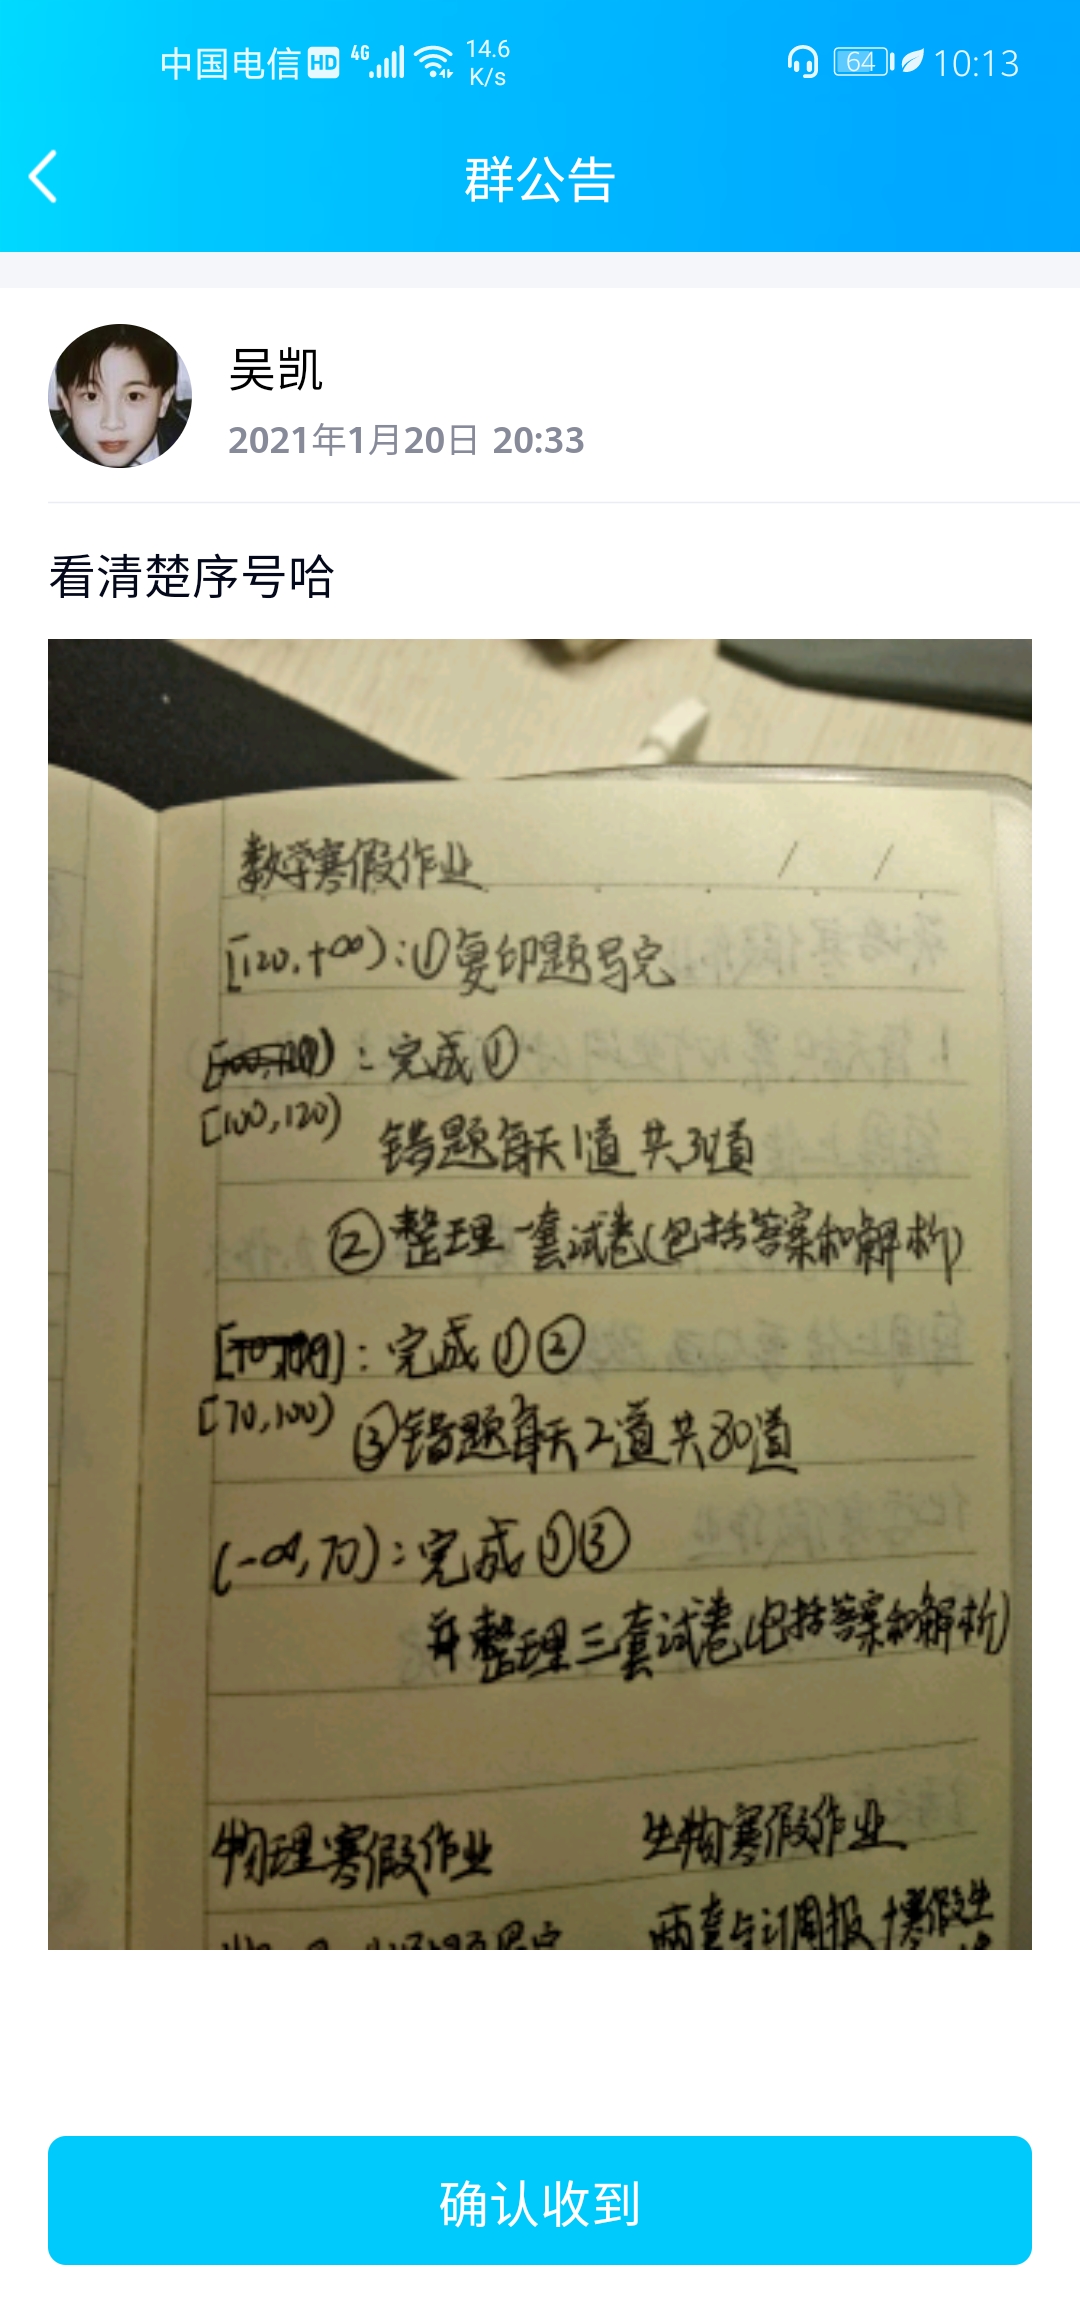 中国电信 HD 4G 14.6 K/s 64 10:13
群公告
吴凯
2021年1月20日 20:33
看清楚序号哈
数学寒假作业 / /
[120,+∞):①复印题写完
:完成①
[100,120)
错题每天1道 共30道
②整理一套试卷(包括答案和解析)
:完成①②
[70,100)
③错题每天2道共80道
(-∞,70):完成①③
并整理三套试卷(包括答案和解析)
物理寒假作业 生物寒假作业
两套与订周报+寒假生
确认收到